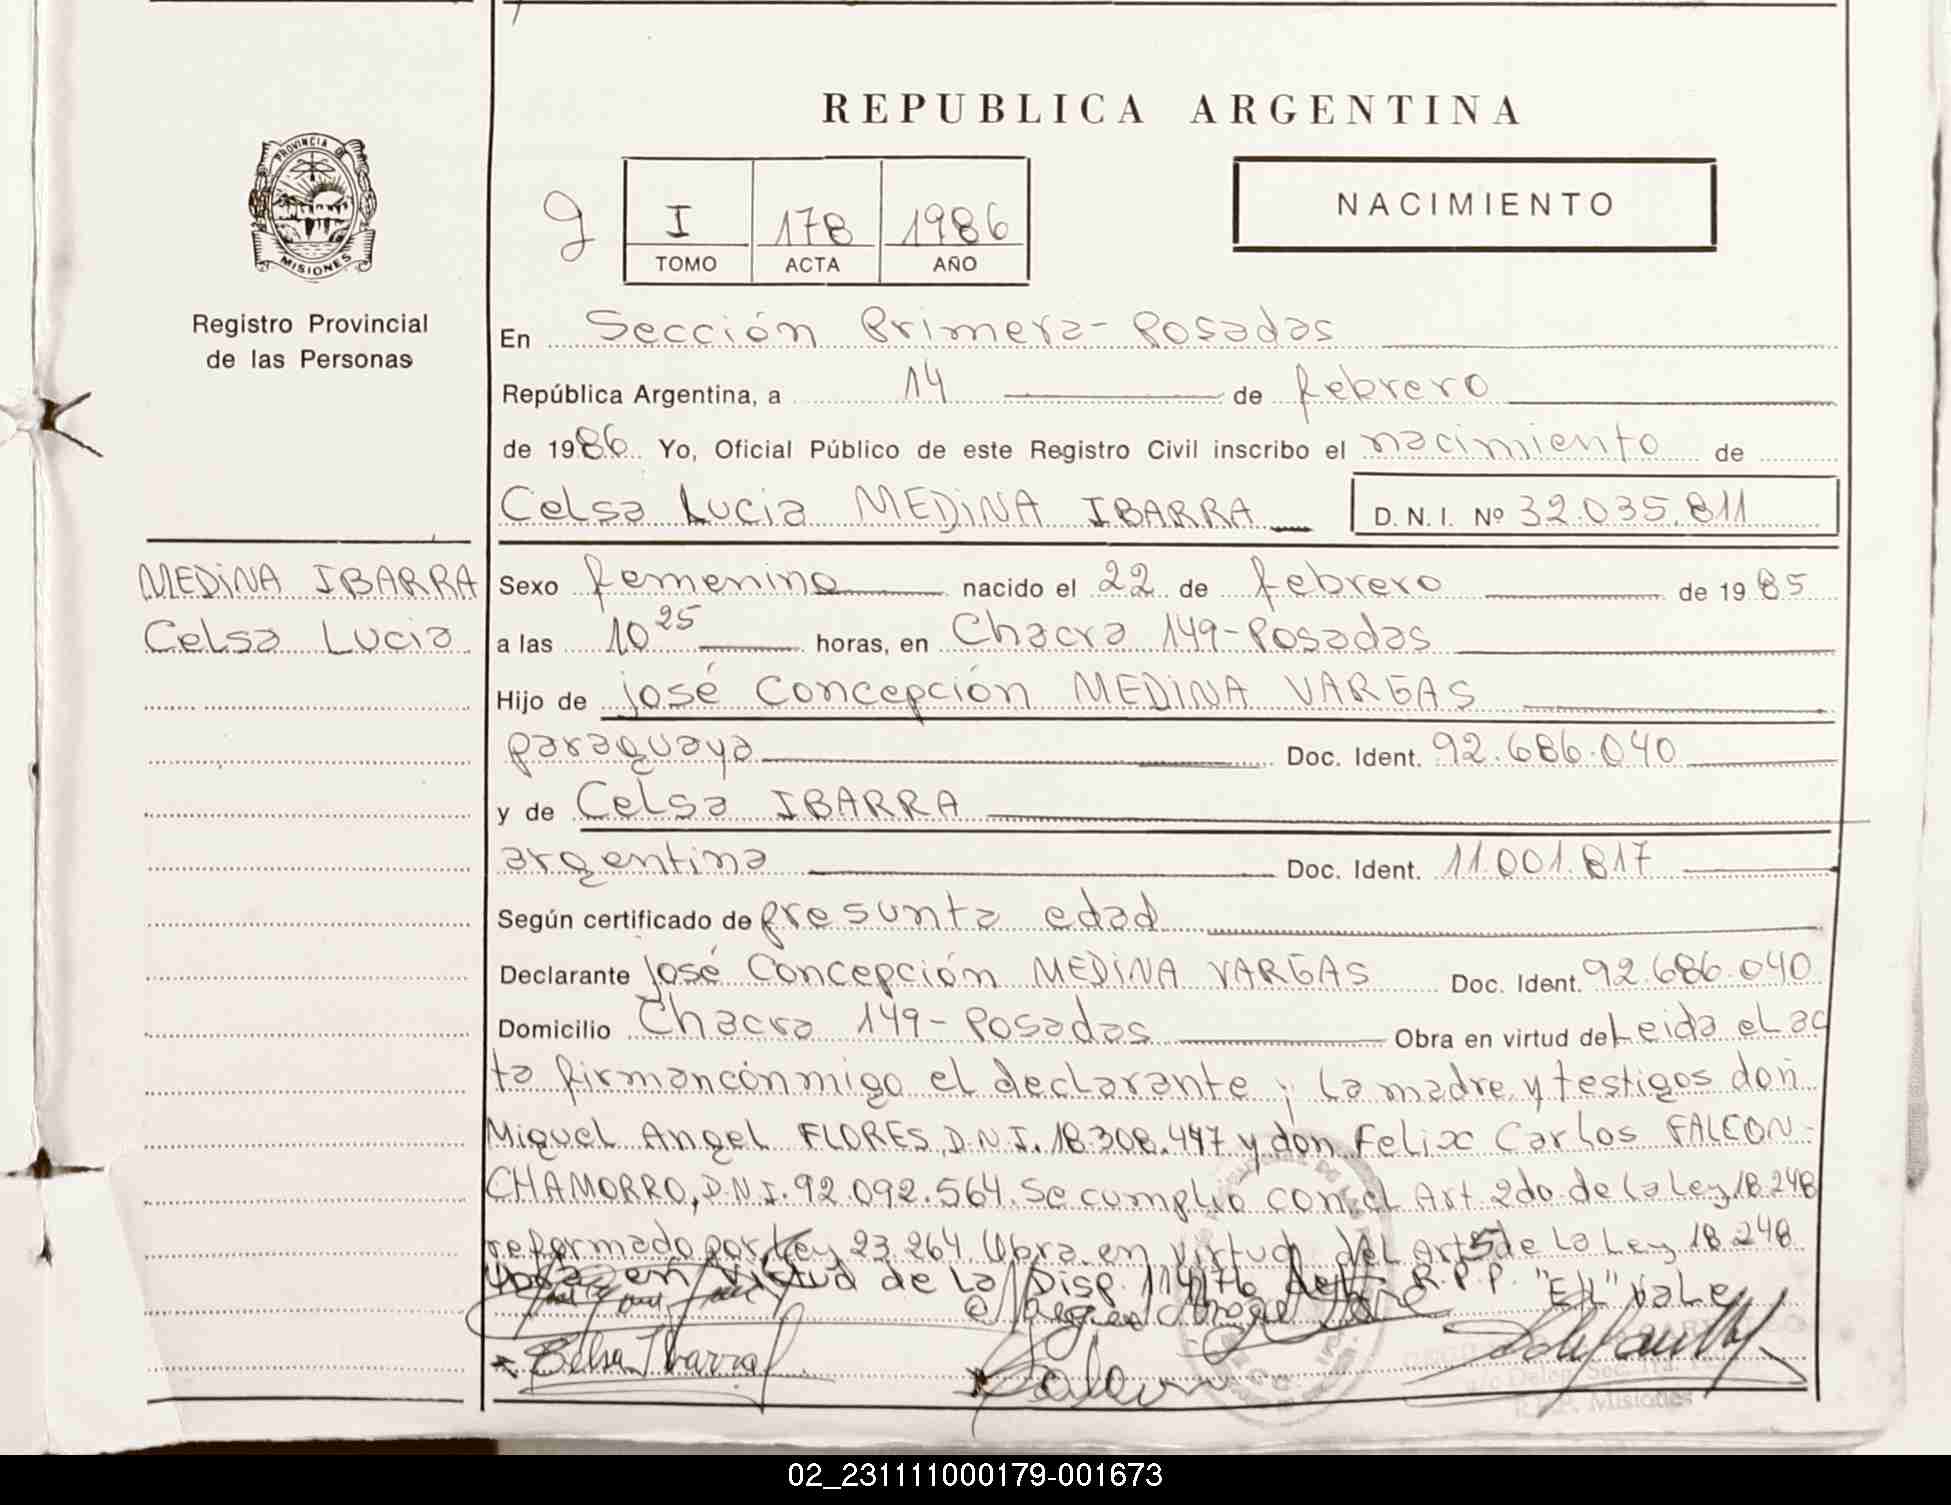 REPUBLICA ARGENTINA
PROVINCIA DE
MISIONES
Registro Provincial
de las Personas
I 178 1986
TOMO ACTA AÑO
NACIMIENTO
En Sección Primera - Posadas
República Argentina, a 14 de febrero
de 1986 Yo, Oficial Público de este Registro Civil inscribo el nacimiento de
Celsa Lucia MEDINA IBARRA D.N.I. Nº 32.035.811
MEDINA IBARRA
Celsa Lucia
Sexo femenino nacido el 22 de febrero de 1985
a las 10 25 horas, en Chacra 149 - Posadas
Hijo de José Concepción MEDINA VARGAS
paraguaya Doc. Ident. 92.686.040
y de Celsa IBARRA
argentina Doc. Ident. 11.001.817
Según certificado de presunta edad
Declarante José Concepción MEDINA VARGAS Doc. Ident. 92.686.040
Domicilio Chacra 149 - Posadas Obra en virtud de Leida el ac
ta firman cónmigo el declarante ; la madre y testigos don
Miguel Angel FLORES, D.N.I. 18.308.447 y don Felix Carlos FALCON -
CHAMORRO, D.N.I. 92.092.564. Se cumplio con el Art. 2do. de la Ley 18.248
reformado por Ley 23.264. Obra en virtud del Art 5 de la Ley 18.248
en virtud de la Disp. 114/76 del R.P.P. "EL" Vale
Celsa Ibarra
R.P.P. Misiones
02_231111000179-001673